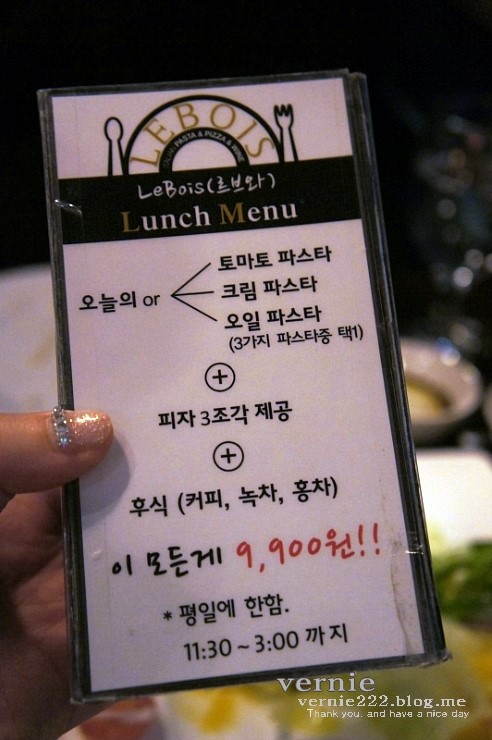 LEBOIS
PASTA & PIZZA & WINE
LeBois(르브와)
Lunch Menu
토마토 파스타
오늘의 or 크림 파스타
오일 파스타
(3가지 파스타중 택1)
+
피자 3조각 제공
+
후식 (커피, 녹차, 홍차)
이 모든게 9,900원!!
* 평일에 한함.
11:30 ~ 3:00 까지
vernie
vernie222.blog.me
Thank you. and have a nice day